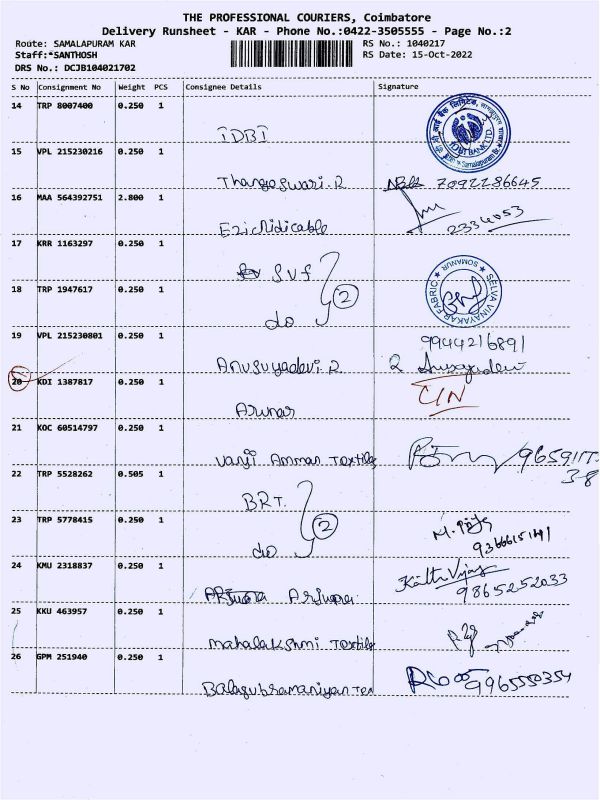 THE PROFESSIONAL COURIERS, Coimbatore
Delivery Runsheet - KAR - Phone No.:0422-3505555 - Page No.:2
Route: SAMALAPURAM KAR RS No.: 1040217
Staff:*SANTHOSH RS Date: 15-Oct-2022
DRS No.: DCJB104021702
S No Consignment No Weight PCS Consignee Details Signature
14 TRP 8007400 0.250 1
IDBI
IDBI BANK LTD.
15 VPL 215230216 0.250 1
Thangeswari.R 7092286645
16 MAA 564392751 2.800 1
2334053
17 KRR 1163297 0.250 1
SVF
2
18 TRP 1947617 0.250 1
do
SELVA VINAYAKAR FABRIC
SOMANUR
19 VPL 215230801 0.250 1
9944216891
Anusuyadevi.R R Anusuyadevi
20 KDI 1387817 0.250 1
C/N
21 KOC 60514797 0.250 1
Vanji Amman Textiles
22 TRP 5528262 0.505 1
BRT.
2
23 TRP 5778415 0.250 1
do
24 KMU 2318837 0.250 1
Arjuna 9865252033
25 KKU 463957 0.250 1
Mahalakshmi Textile
26 GPM 251940 0.250 1
Balasubramaniyan Tex 9965550354